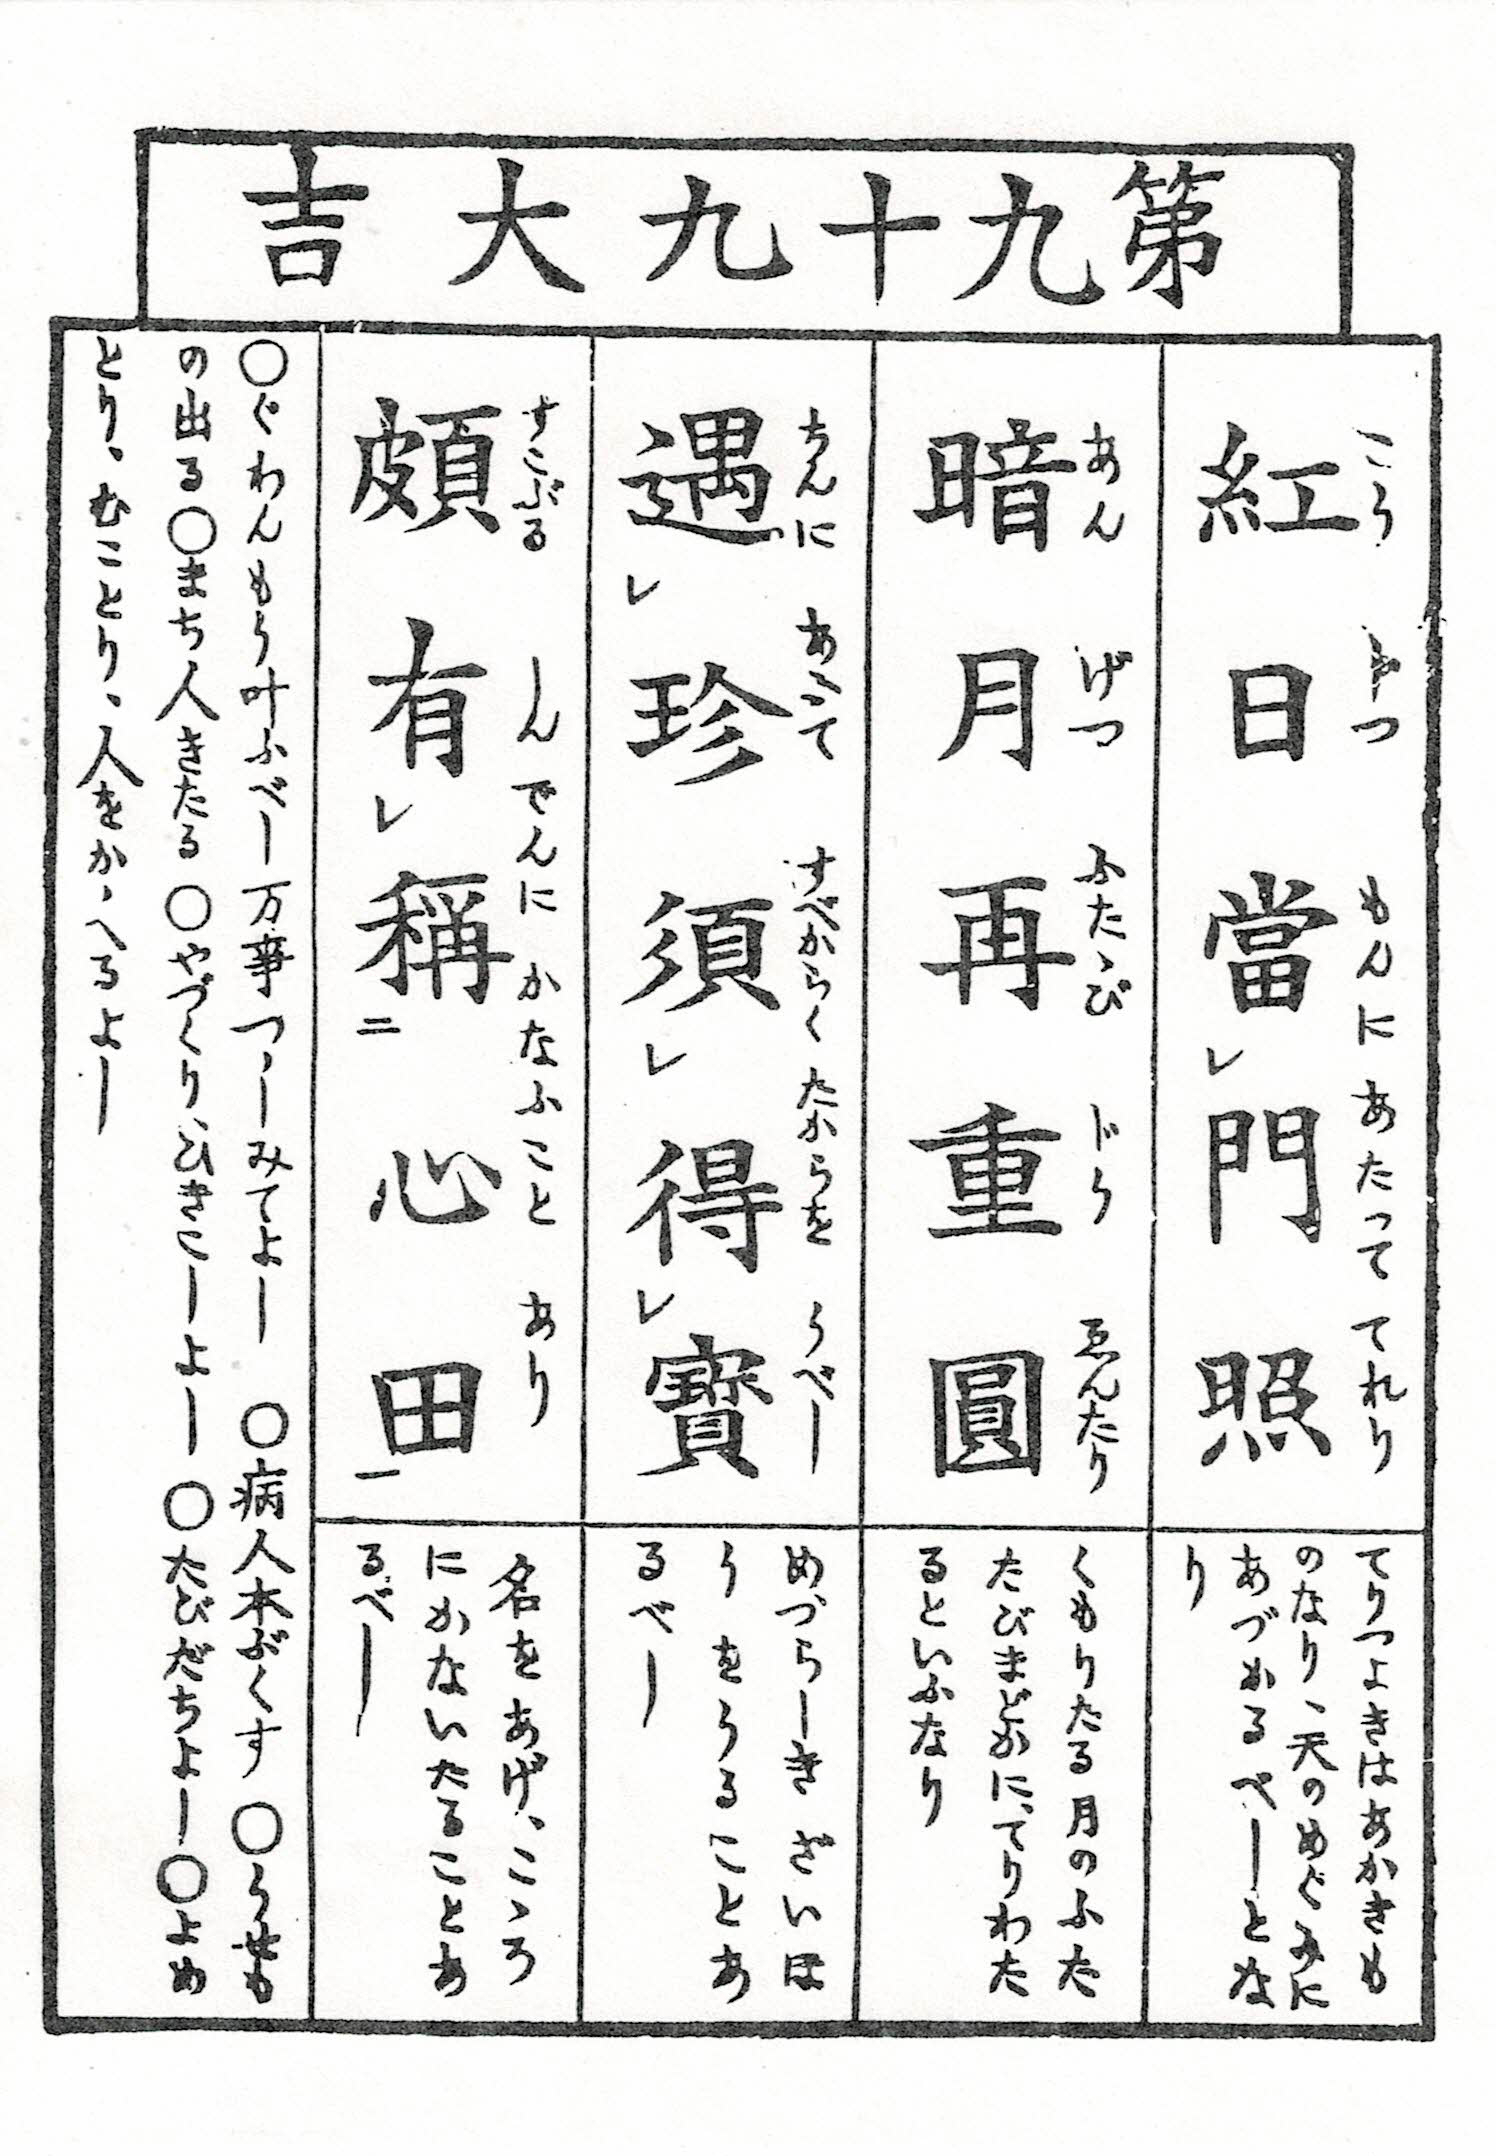 第九十九大吉
こう じつ もんに あたって てれり
紅日當レ門照
てりつよきはあかきも
のなり、天のめぐみに
あづかるべしとな
り
あん げつ ふたゝび ぢう ゑんたり
暗月再重圓
くもりたる月のふた
たびまどかに、てりわた
るといふなり
ちんに あふて すべからく たからを うべし
遇レ珍須レ得レ寶
めづらしき ざいほ
う をうることあ
るべし
すこぶる しんでんに かなふこと あり
頗有レ稱二心田一
名をあげ、こゝろ
にかないたることあ
るべし
○ぐわんもう叶ふべし万事つゝしみてよし ○病人本ぶくす ○うせも
の出る○まち人きたる ○やづくり、ひきこしよし ○たびだちよし○よめ
とり、むことり、人をかゝへるよし